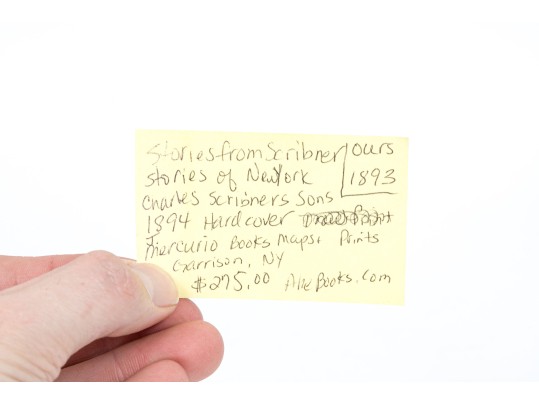 Stories from Scribner
ours
stories of New York
1893
Charles Scribners Sons
1894 Hardcover
Mercurio Books Maps + Prints
Garrison, NY
$275.00 AbeBooks.com